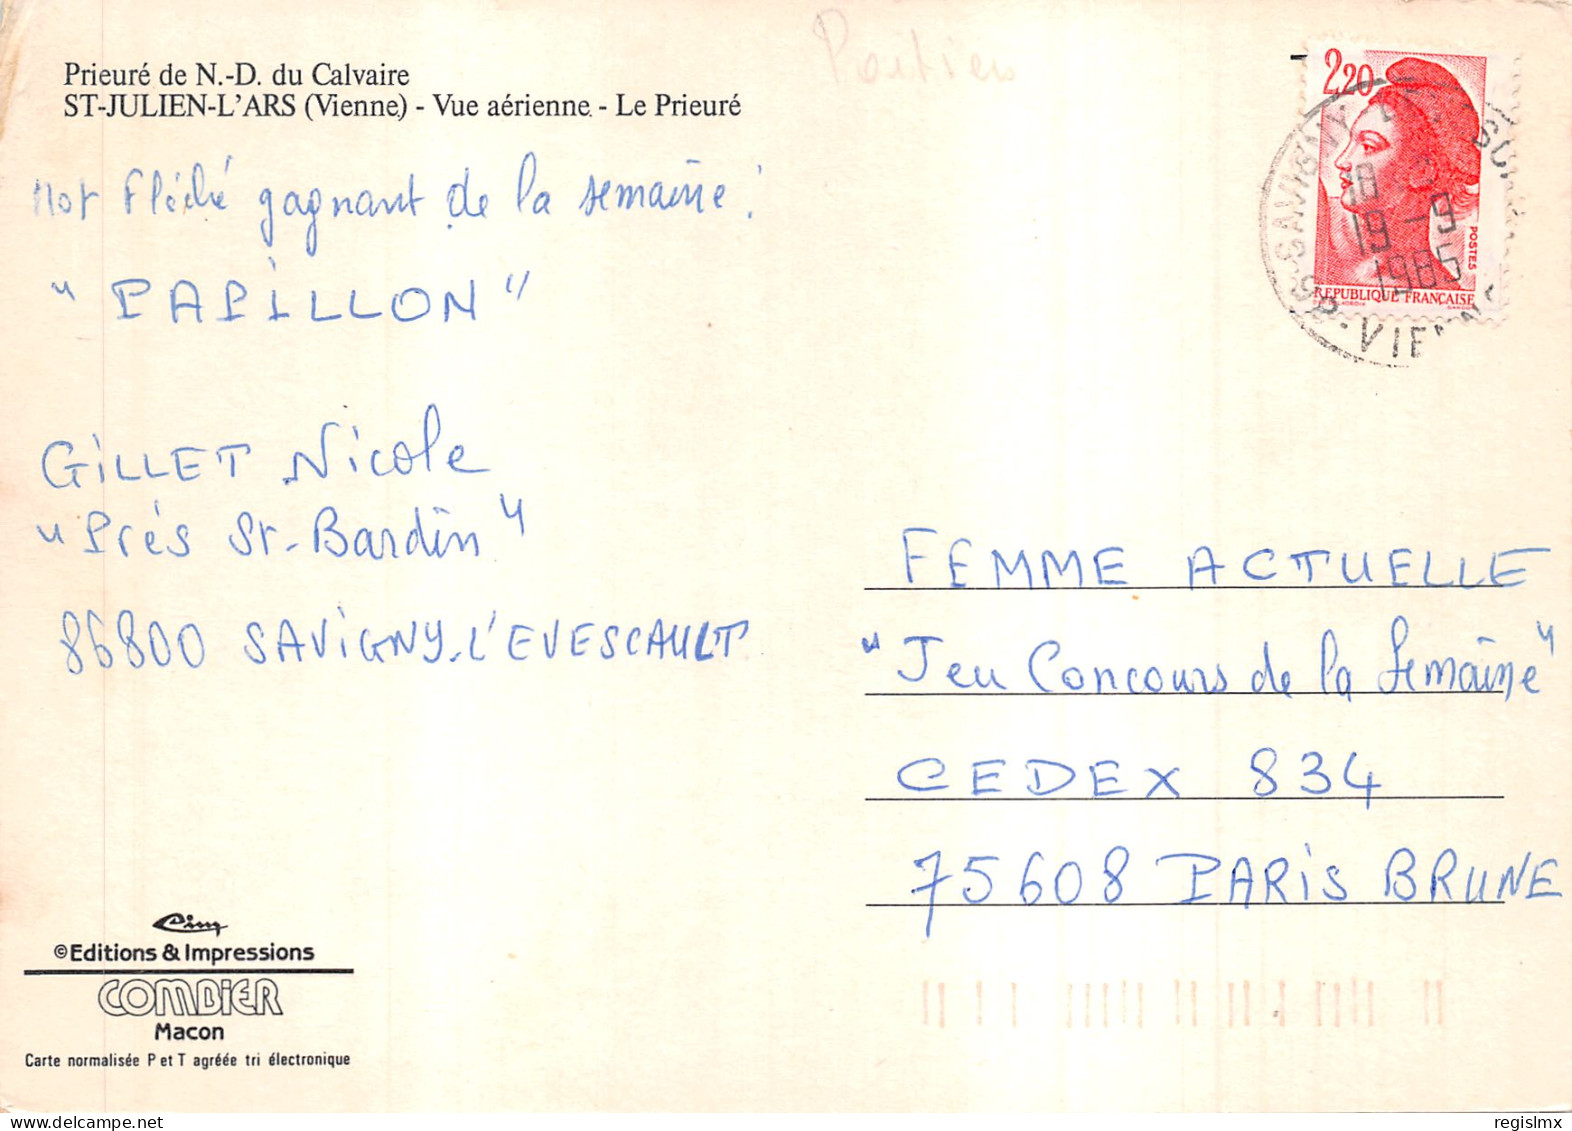 Prieuré de N.-D. du Calvaire
ST-JULIEN-L'ARS (Vienne) - Vue aérienne - Le Prieuré
Mot Fléché gagnant de la semaine :
"PAPILLON"
GILLET Nicole
"Prés St-Bardin"
86800 SAVIGNY-L'EVESCAULT
©Editions & Impressions
COMBIER
Macon
Carte normalisée P et T agréée tri électronique
Poitiers
2,20
POSTES
REPUBLIQUE FRANÇAISE
SAVIGNY
18
19-9
1985
86-VIENNE
FEMME ACTUELLE
"Jeu Concours de la Semaine"
CEDEX 834
75608 PARIS BRUNE
regislmx